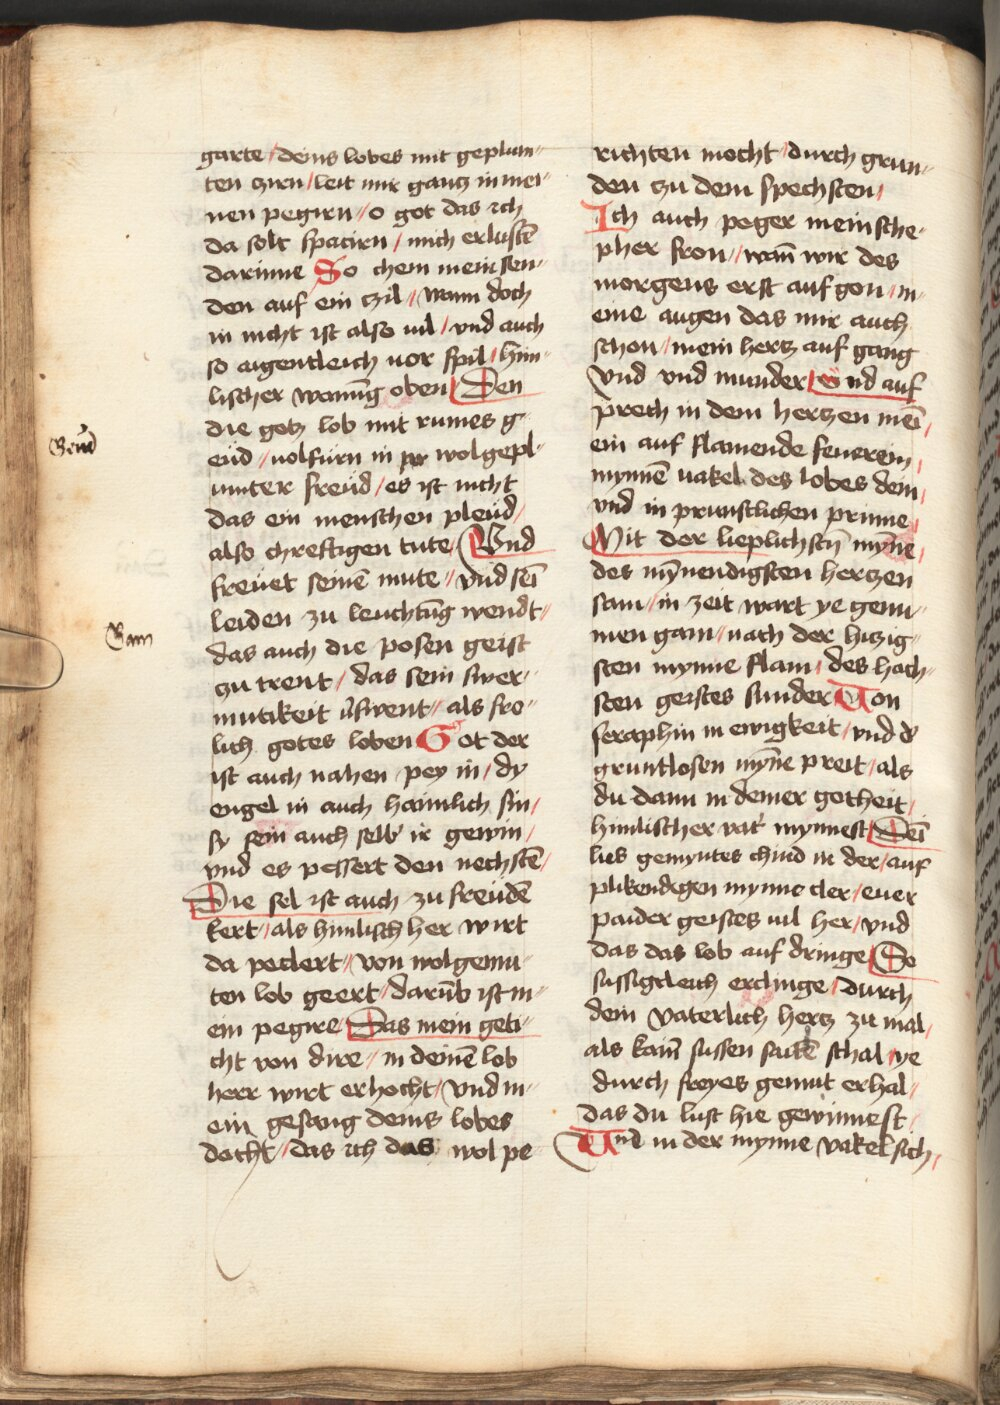 garte / deins lobes mit geplum-
ten czirn / leit mir gancz in mei-
nen pegirn // o got das ich
da solt spacirn / mich erlustē
darinne So chem mein sen-
den auf ein czil / wann doch
in nicht ist also uil / vnd auch
so aigentleich uor spil / him-
lischer wonūg oben / Den
die gotz lob mit rumes g
eud // uolfurn in wolgepl-
umter freud / es ist nicht
das ein menschen pleud /
also chreftigen tute / Vnd
freuet seinē mute // vnd sei
leiden zu leuchtūg wendt //
das auch die posen geist
zu trent / das sein swer-
mutikeit uswent // als fro-
lich gotes loben Got der
ist auch nahen / pey in / dy
engel in auch haimlich sin /
sy sein auch selb ir gewin /
vnd es pessert den nechstē /
Die sel ist auch zu freudē
kert / als himlisch her wirt
da peclert // von wolgemu-
ten lob geert / darūb ist m-
ein pegire / Das mein geti-
cht von dire // in deinē lob
herr wirt erhocht / vnd m-
ein gesang deins lobes
docht / das ich das wol pe
Gend
Gam
richten mocht / durch grun-
den zu dem spechsten /
Ich auch peger mein sche-
pher fron // wañ wir des
morgens erst auf gon / m-
eine augen das mir auch
schon / mein hertz auf gang
vnd vnd munder / Vnd auf
prech in dem hertzen mei /
ein auf flamende feurein /
mynnē uakel des lobes dein /
vnd in prunstlichen prinne /
Mit der lieplichstē myñe /
des myñendigsten hertzen
sam // in zeit wart ye genu-
men gam / nach der hizig-
sten mynne flam / des hoch-
sten geistes sunder Von
seraphin in ewigkeit / vnd d
gruntlosen myñe preit / als
du dann in deiner gotheit /
himlischer vat mynnest / Dei
libs gemyntes chind in der / auf
plikendigen mynne cler / euer
paider geistes uil her / vnd
das das lob auf dringe / So
sussigcleich erclinge / durch
dein vaterlich hertz zu mal /
als kaiñ sussen saitē schal / ye
durch freyes gemut erhal /
das du lust hie gewinnest /
Vnd in der mynne vakel sich /